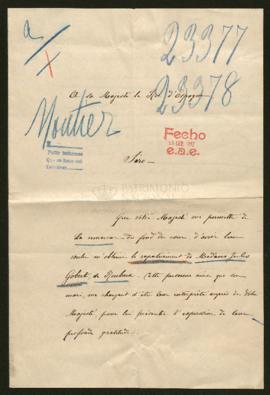 23377
23378
A sa Majesté le Roi d'Espagne
Moutier
Fecho
e.a.e.
Sire
PATRIMONIO
Que votre Majesté me permette de
la remercier du fond du cœur d'avoir bien
voulu m'obtenir le rapatriement de Madame
Gobert de Roubaix. Cette personne ainsi que son
mari, me chargent d'être leur interprète auprès de Votre
Majesté, pour lui présenter l'expression de leur
profonde gratitude.